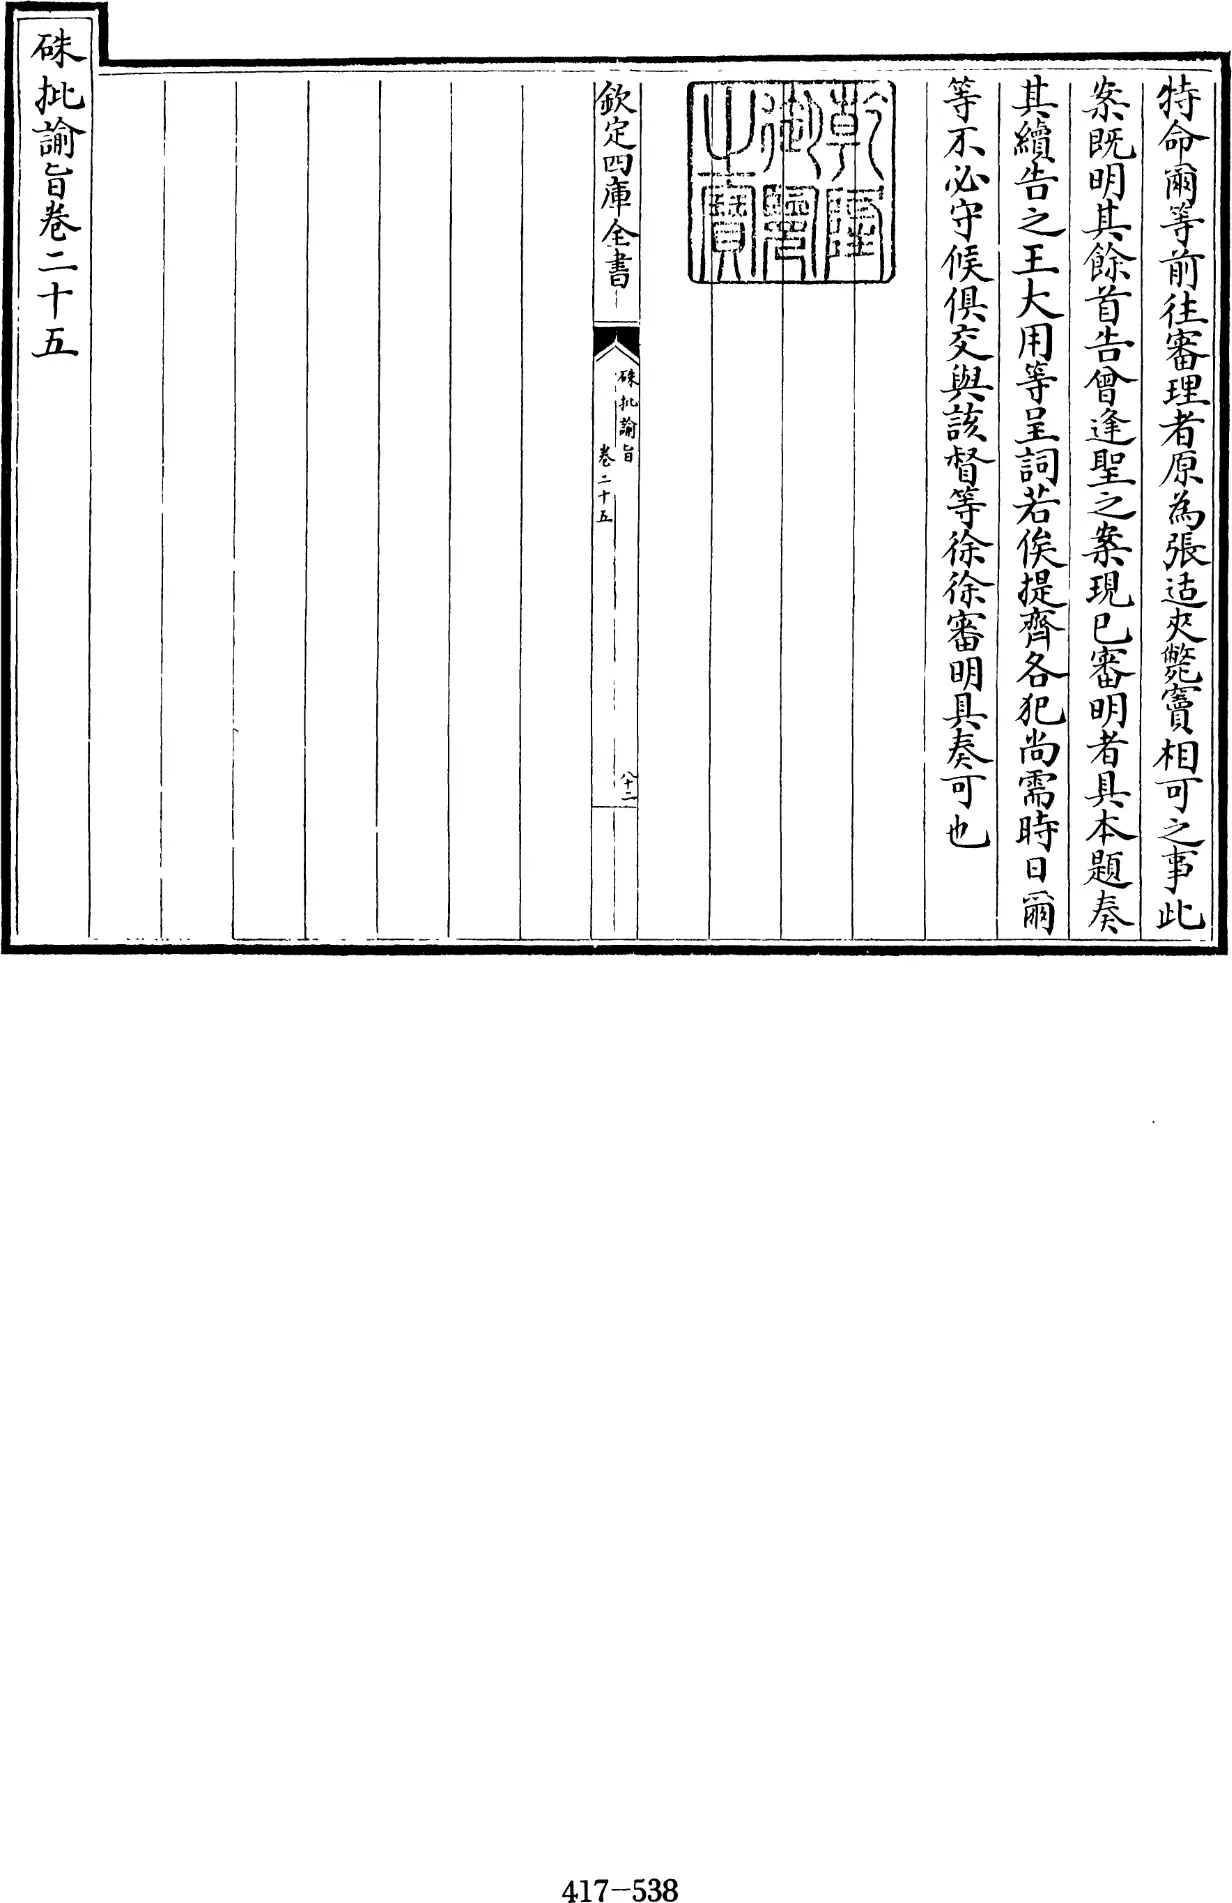 特命爾等前往審理者原為張适夾斃竇相可之事此
案既明其餘首告曾逢聖之案現已審明者具本題奏
其續告之王大用等呈詞若俟提齊各犯尚需時日爾
等不必守候俱交與該督等徐徐審明具奏可也
乾隆
御覽
之寶
欽定四庫全書
硃批諭旨
卷二十五
八十二
硃批諭旨卷二十五
417-538